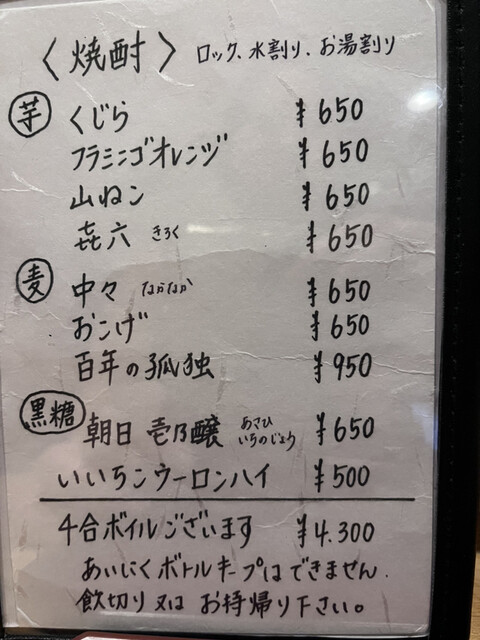 〈焼酎〉 ロック、水割り、お湯割り
芋 くじら ¥650
フラミンゴオレンヂ ¥650
山ねこ ¥650
㐂六 きろく ¥650
麦 中々 なかなか ¥650
おこげ ¥650
百年の孤独 ¥950
黒糖 朝日 壱乃醸 あさひ いちのじょう ¥650
いいちこウーロンハイ ¥500
4合ボイルございます ¥4.300
あいにくボトルキープはできません.
飲切り又はお持帰り下さい。